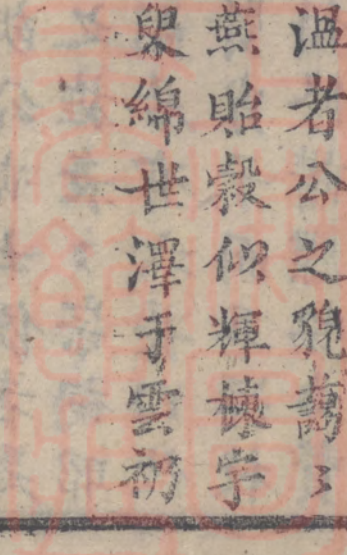 温者公之貌藹〻
燕貽穀似輝棟宇
㒷綿世澤于雲礽